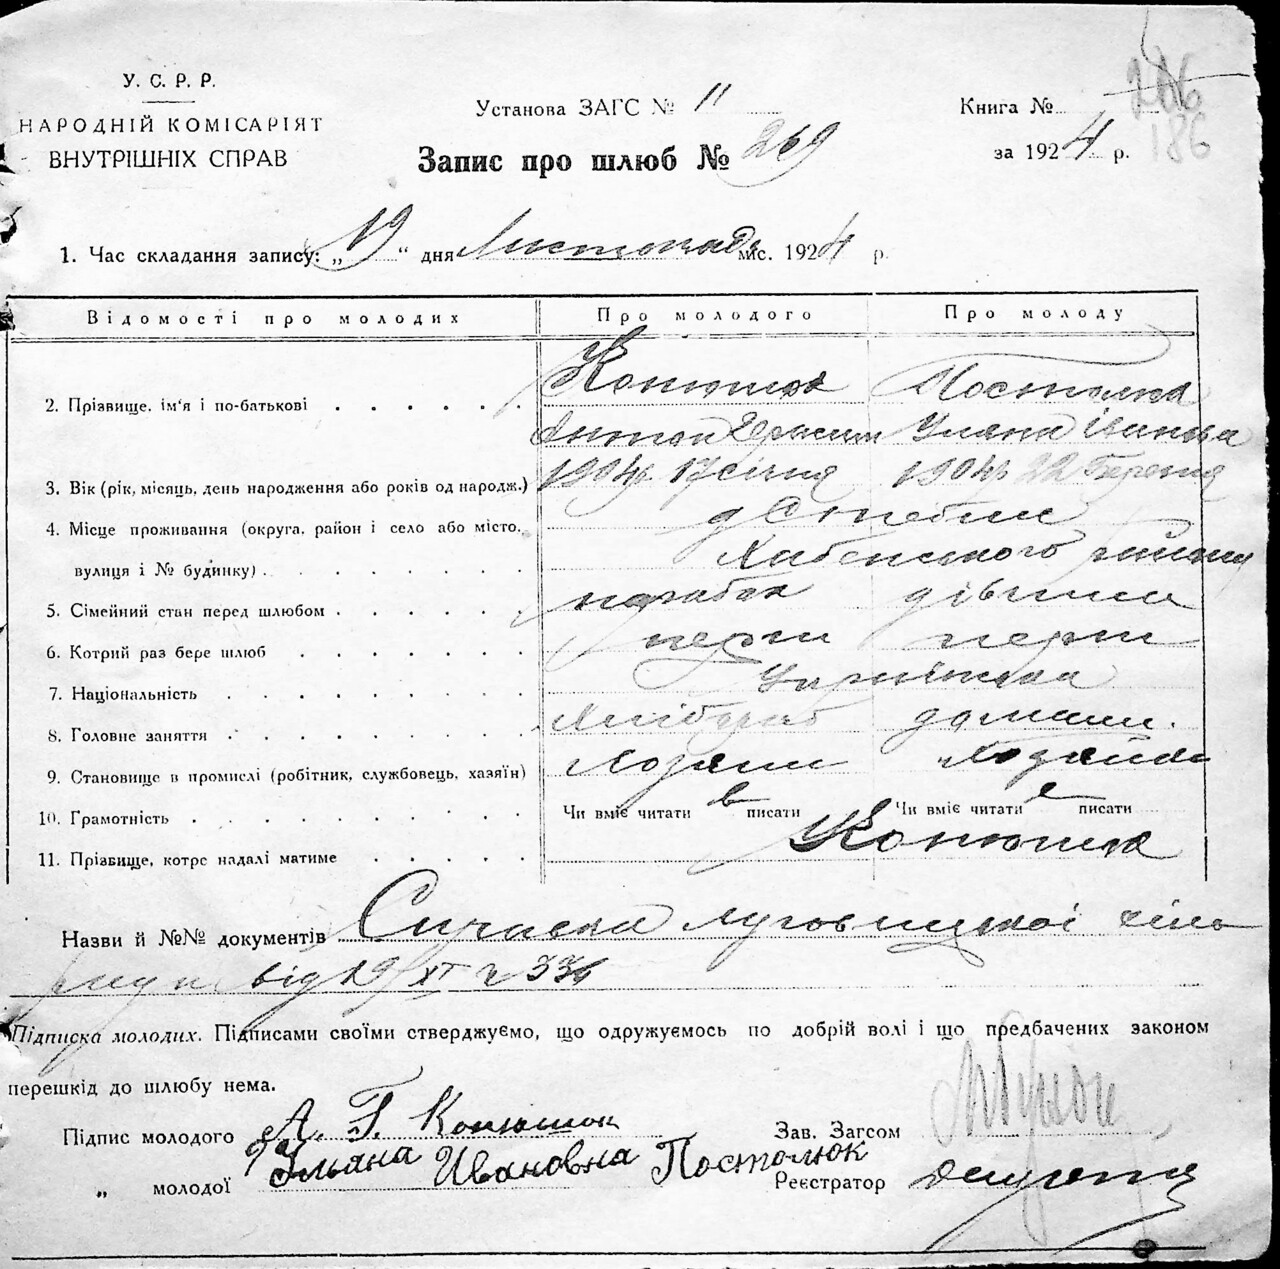 У. С. Р. Р.
НАРОДНІЙ КОМІСАРІЯТ
ВНУТРІШНІХ СПРАВ
Установа ЗАГС № 11
Запис про шлюб № 269
Книга №
206
186
за 1924 р.
1. Час складання запису: „19“ дня Листопада міс. 1924 р.
Відомості про молодих Про молодого Про молоду
2. Прізвище, ім'я і по-батькові Конюшок Постолюк
Антон Герасим Уляна Іванова
3. Вік (рік, місяць, день народження або років од народж.) 1904р. 17 січня 1904р 22 Березня
4. Місце проживання (округа, район і село або місто,
вулиця і № будинку) Хабенського району
5. Сімейний стан перед шлюбом парубок дівчина
6. Котрий раз бере шлюб перши перши
7. Національність
8. Головне заняття Хлібороб домашн.
9. Становище в промислі (робітник, службовець, хазяїн) Хозяин Хозяйка
10. Грамотність Чи вміє читати писати Чи вміє читати писати
11. Прізвище, котре надалі матиме Конюшок
Назви й №№ документів Справка сіль
від 19/XI №
Підписка молодих. Підписами своїми стверджуємо, що одружуємось по добрій волі і що предбачених законом
перешкід до шлюбу нема.
Підпис молодого А. Г. Конюшок Зав. Загсом
„ молодої Ульяна Ивановна Постолюк
Реєстратор